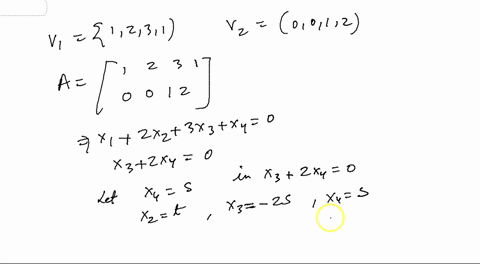 V₁ = {1,2,3,1)    V₂ = (0,0,1,2)
A = [ 1 2 3 1
0 0 1 2 ]
⇒ x₁ + 2x₂ + 3x₃ + x₄ = 0
x₃ + 2x₄ = 0
Let x₄ = s    in x₃ + 2x₄ = 0
x₂ = t , x₃ = -2s , x₄ = s